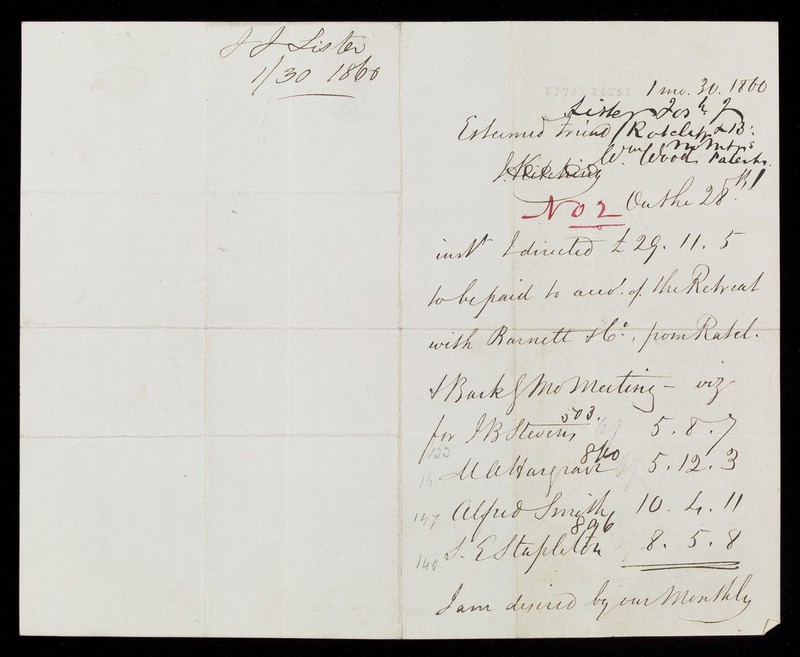 J J Lister
1/30 1860
1 mo. 30. 1860
Lister Josh J
Esteemed Friend Ratcliff & B:
Mo Mtgs
Wm Wood Patients.
J. Kitching
No 2 On the 28th
inst I directed £29. 11. 5
to be paid to acct. of the Retreat
with Barnett & Co., from Ratcl.
& Bark g Mo Meeting - viz
503.
for J B Stevens 5. 8. 7
133
860
16 M A Hargrave 5. 12. 3
147 Alfred Smith 10. 4. 11
896
140 S. E Stapleton 8. 5. 8
I am desired by our Monthly